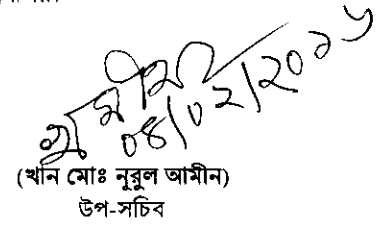 ০৪/০২/২০১৬
(খান মোঃ নূরুল আমীন)
উপ-সচিব